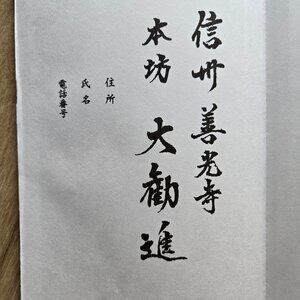 信州 善光寺
本坊 大勧進
住所
氏名
電話番号